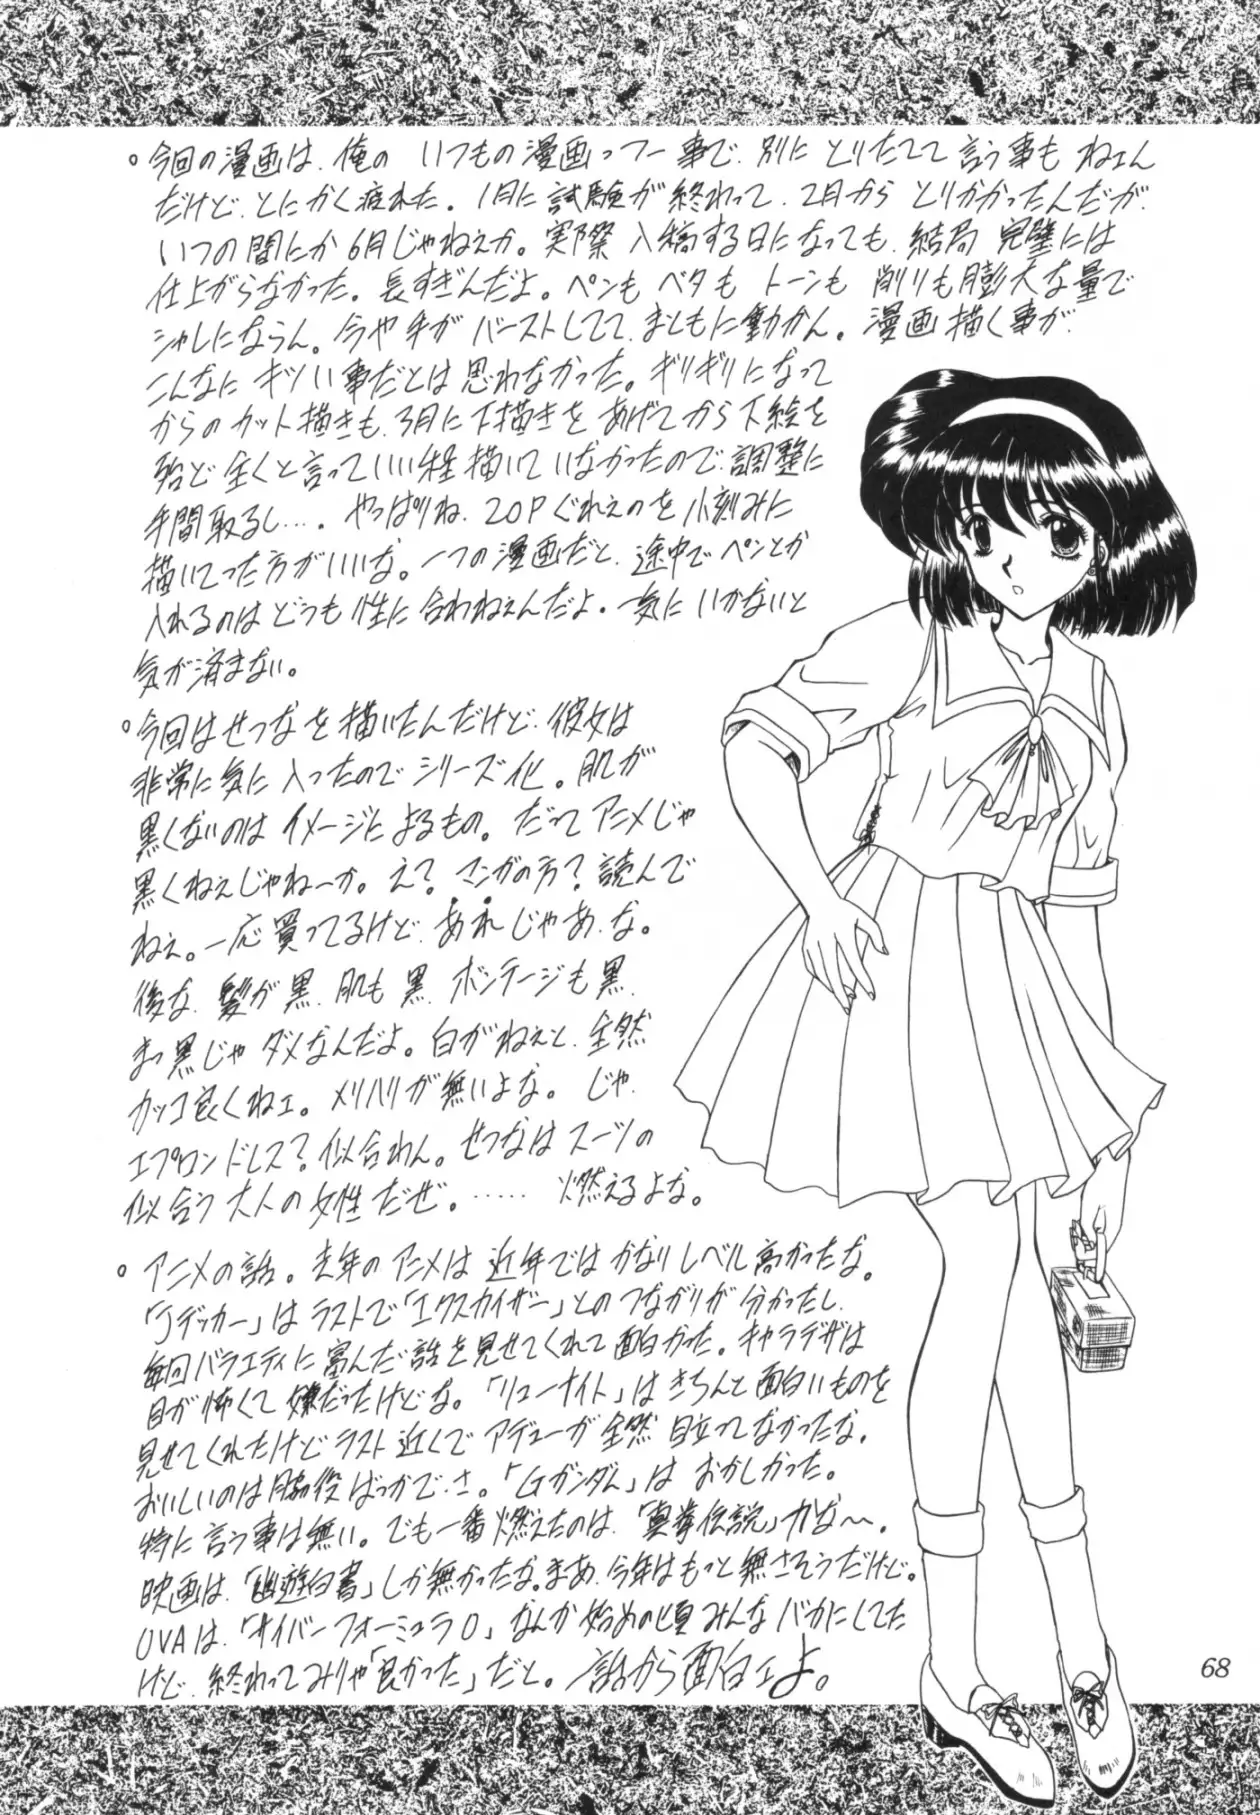 。今回の漫画は、俺の いつもの漫画っつー事で、別に とりたてて言う事も ねェん
だけど、とにかく疲れた。1月に試験が終わって、2月から とりかかったんだが、
いつの間にか6月じゃねえか。実際 入稿する日になっても、結局 完璧には
仕上がらなかった。長すぎんだよ。ペンも ベタも トーンも 削りも膨大な量で
シャレにならん。今や手が バーストしてて、まともに動かん。漫画描く事が、
こんなに キツい事だとは 思わなかった。ギリギリになって
からの カット描きも、3月に下描きを あげてから下絵を
殆ど全くと言っていい程描いていなかったので、調整に
手間取るし…。やっぱりね、20Pぐれえのを小刻みに
描いてった方がいいな。一つの漫画だと、途中で ペンとか
入れるのは どうも 性に合わねえんだよ。一気に いかないと
気が済まない。
。今回はせつなを描いたんだけど、彼女は
非常に気に入ったので シリーズ化。肌が
黒くないのは イメージに よるもの。だって アニメじゃ
黒くねえじゃねーか。え？マンガの方？読んで
ねぇ。一応買ってるけど、あれじゃあ、な。
後な、髪が黒、肌も黒、ボンテージも黒、
まっ黒じゃ ダメなんだよ。白がねえと、全然
カッコ良くねェ。メリハリが無いよな。じゃ、
エプロンドレス？似合わん。せつなは スーツの
似合う大人の女性だぜ。…… 燃えるよな。
。アニメの話。去年の アニメは 近年では かなりレベル高かったな。
「Jデッカー」は ラストで「エクスカイザー」との つながりが 分かったし、
毎回バラエティに富んだ話を見せてくれて面白かった。キャラデザは
目が怖くて嫌だったけどな。「リューナイト」は きちんと面白いものを
見せてくれたけど ラスト近くで アデューが 全然 目立ってなかったな。
おいしいのは脇役ばっかでさ。「Gガンダム」は おかしかった。
特に言う事は無い。でも一番燃えたのは、「真拳伝説」かな〜。
映画は、「幽遊白書」しか無かったな。まあ、今年はもっと無さそうだけど。
OVAは、「サイバーフォーミュラ0」、なんか始めの頃みんなバカにしてた
けど、終わってみりゃ「良かった」だと。話から面白ェよ。
68